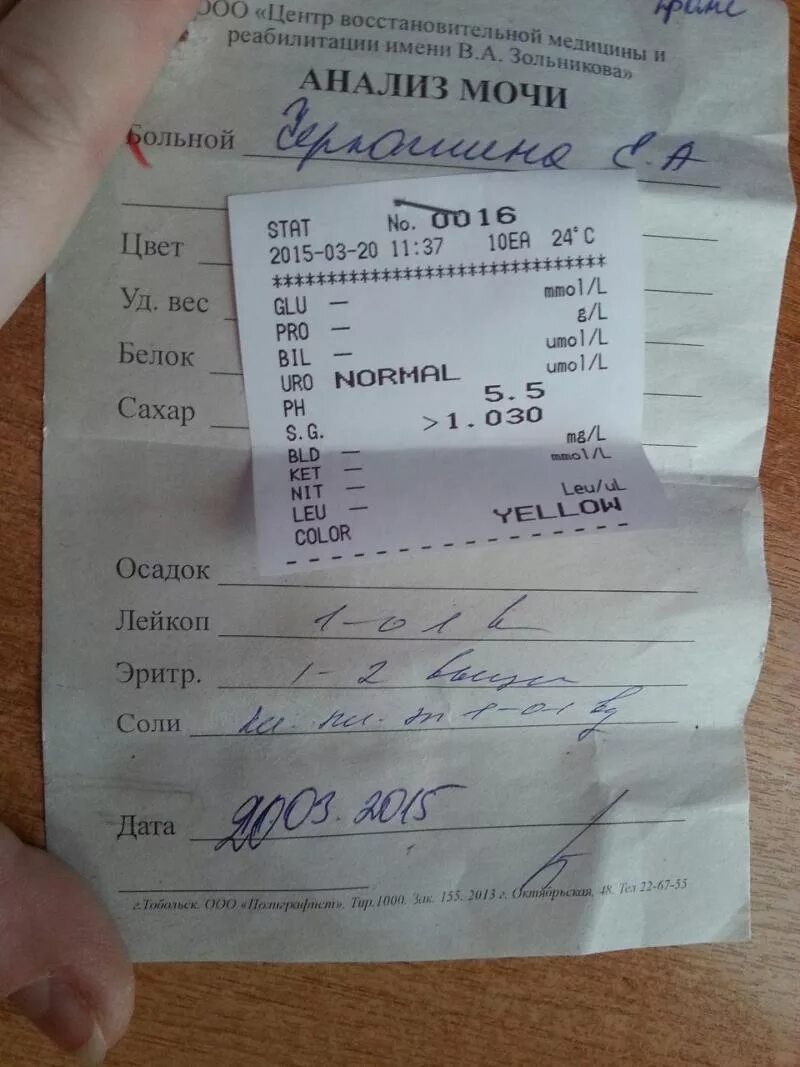 ООО «Центр восстановительной медицины и
реабилитации имени В.А. Зольникова»
АНАЛИЗ МОЧИ
Больной Е.А
STAT No. 0016
2015-03-20 11:37 10EA 24°C
******************************
Цвет
GLU — mmol/L
Уд. вес
PRO — g/L
BIL — umol/L
Белок
URO NORMAL umol/L
PH 5.5
Сахар
S.G. >1.030
BLD — mg/L
KET — mmol/L
NIT —
LEU — Leu/uL
COLOR YELLOW
Осадок
Лейкоп 1-0 1
Эритр. 1-2
Соли
Дата 20 03.2015
г.Тобольск. ООО «Полиграфист». Тир.1000. Зак. 155. 2013 г. Октябрьская, 48. Тел 22-67-55